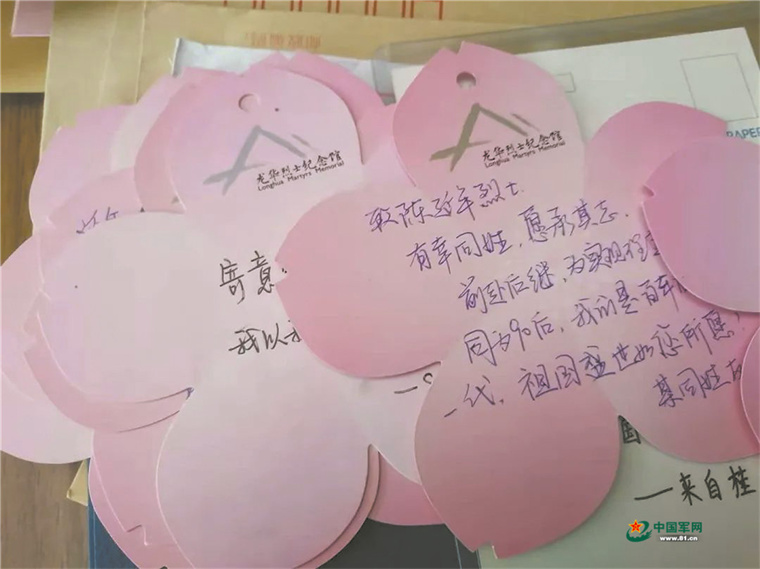 龙华烈士纪念馆
Longhua Martyrs Memorial
龙华烈士纪念馆
Longhua Martyrs Memorial
PAPER
致陈延年烈士:
有幸同姓,愿承其志.
前赴后继,为实现
同为90后,我们是百年
一代,祖国盛世如您所愿!
某同姓
寄意:
我以我
国
——来自桂
中国军网
www.81.cn